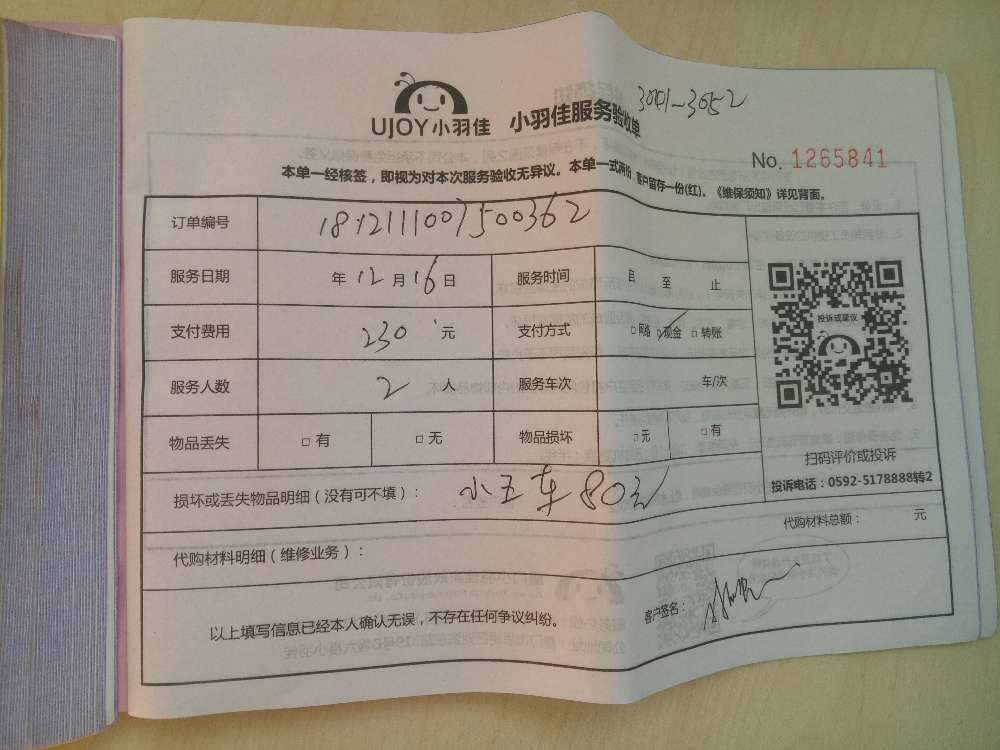 3001~3052
UJOY小羽佳 小羽佳服务验收单
No. 1265841
本单一经核签，即视为对本次服务验收无异议。本单一式两份，客户留存一份(红)。《维保须知》详见背面。
订单编号 1812111007500362
服务日期 年12月16日 服务时间 自 至 止
支付费用 230元 支付方式 □网络 □现金 □转账
投诉或建议
服务人数 2人 服务车次 车/次
物品丢失 □有 □无 物品损坏 □无 □有
扫码评价或投诉
投诉电话：0592-5178888转2
损坏或丢失物品明细（没有可不填）： 小五车80元
代购材料明细（维修业务）： 代购材料总额： 元
以上填写信息已经本人确认无误，不存在任何争议纠纷。 客户签名：